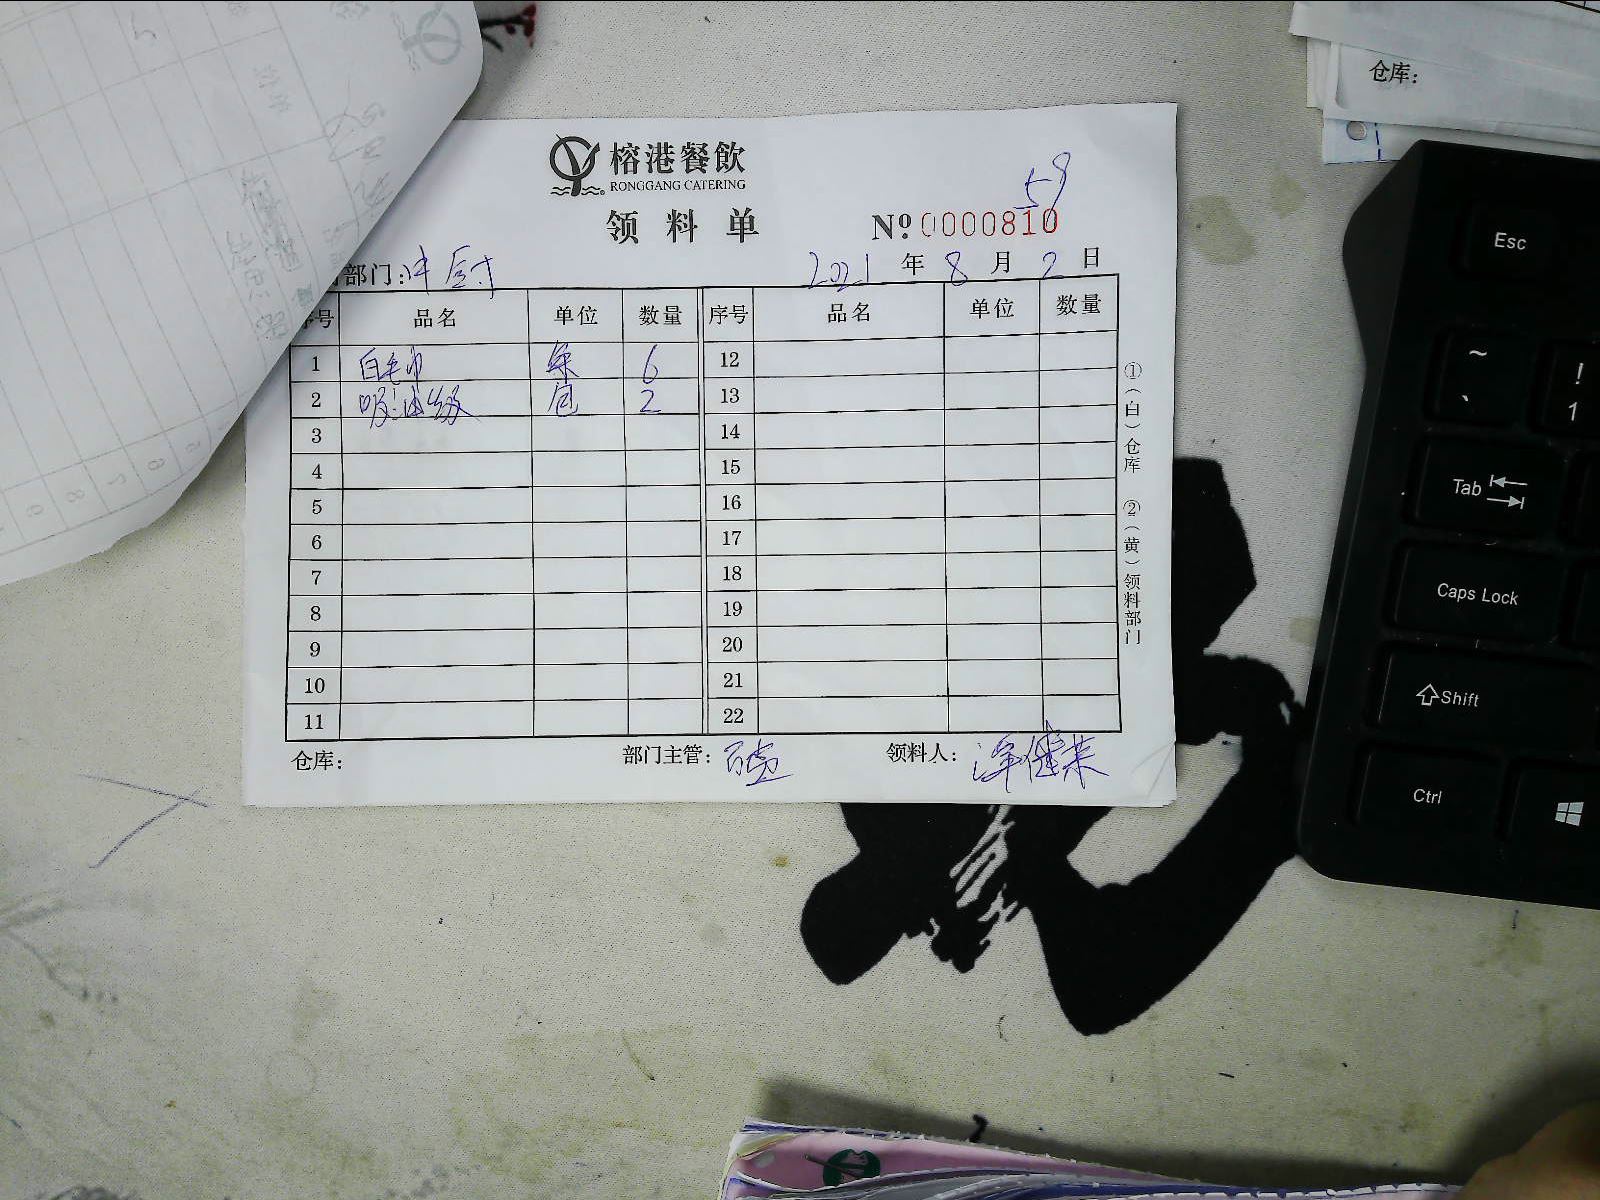 仓库：
榕港餐飲
RONGGANG CATERING
59
领料单 № 0000810
部门：中厨 2021年8月2日
序号 品名 单位 数量 序号 品名 单位 数量
1 白毛巾 条 6 12
2 吸油纸 包 2 13
3 14
4 15
5 16
6 17
7 18
8 19
9 20
10 21
11 22
仓库： 部门主管： 领料人：
①（白）仓库 ②（黄）领料部门
Esc
~ !
` 1
Tab
Caps Lock
Shift
Ctrl